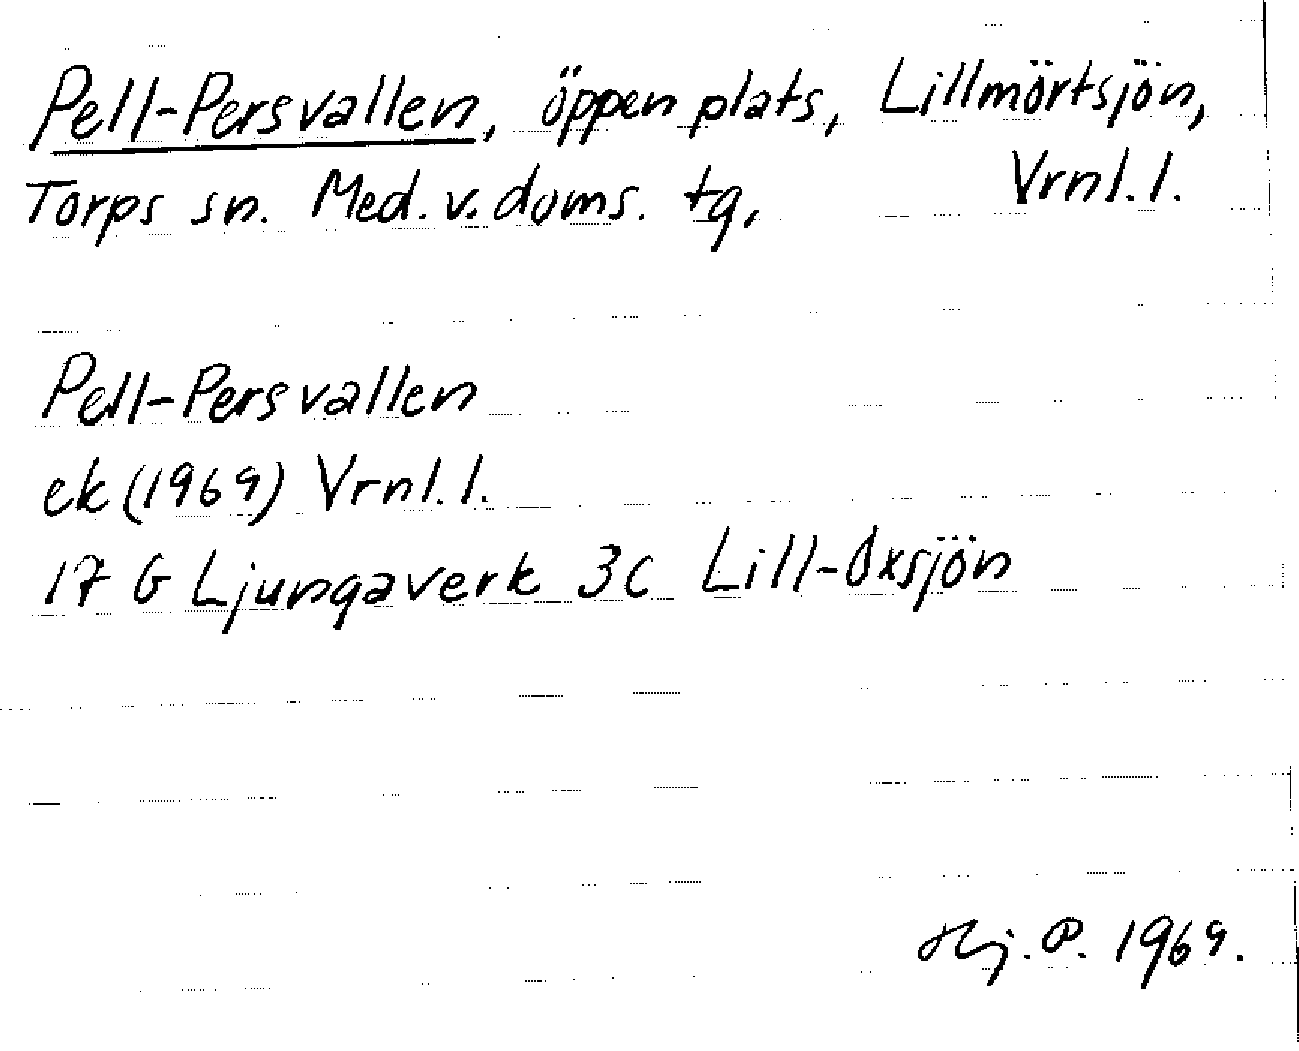 Pell-Persvallen, öppen plats, Lillmörtsjön,
Torps sn. Med. v. doms. tg, Vrnl. l.
Pell-Persvallen
ek (1969) Vrnl. l.
17 G Ljungaverk 3c Lill-Öxsjön
Hj. P. 1969.